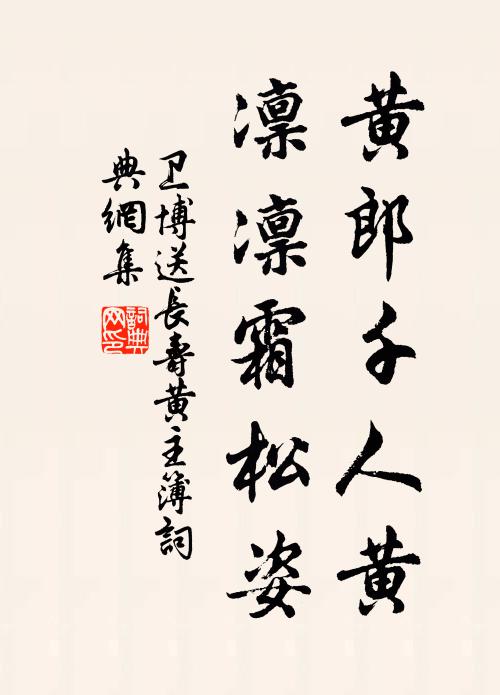 黄郎千人黄
凛凛霜松姿
卫博送長壽黄主簿詞
典網集
詞典
网印